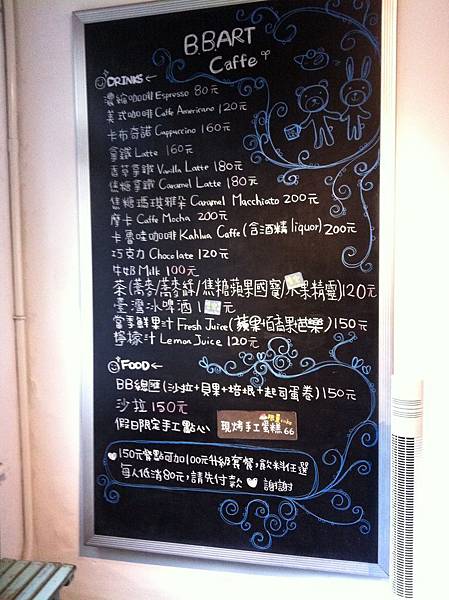 B.B.ART
Caffe
DRINKS←
濃縮咖啡 Espresso 80元
美式咖啡 Caffe Americano 120元
卡布奇諾 Cappuccino 160元
拿鐵 Latte 160元
香草拿鐵 Vanilla Latte 180元
焦糖拿鐵 Caramel Latte 180元
焦糖瑪琪朵 Caramel Macchiato 200元
摩卡 Caffe Mocha 200元
卡魯哇咖啡 Kahlua Caffe (含酒精 liquor) 200元
巧克力 Chocolate 120元
牛奶 Milk 100元
茶(蕎麥/蕎麥綠/焦糖蘋果國寶/水果精靈)120元
臺灣冰啤酒
當季鮮果汁 Fresh Juice (蘋果 百香果 芭樂) 150元
檸檬汁 Lemon Juice 120元
FOOD←
BB總匯(沙拉+貝果+培根+起司蛋卷)150元
沙拉 150元
假日限定手工點心
現烤手工蛋糕 66
150元餐點可加100元升級套餐,飲料任選
每人低消80元,請先付款 謝謝